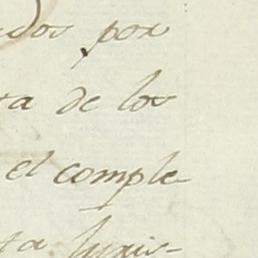 ados por
ra de los
el comple
ta